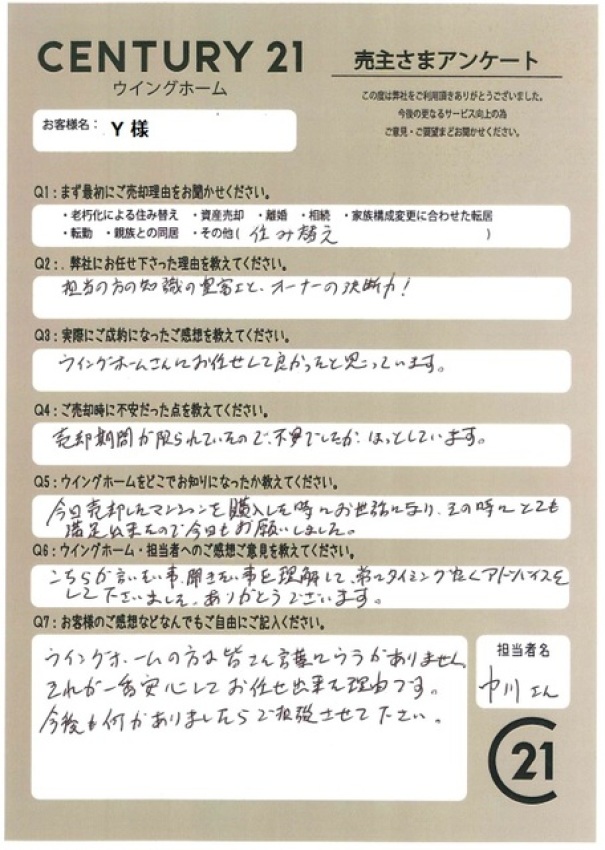 CENTURY 21
ウイングホーム
売主さまアンケート
この度は弊社をご利用頂きありがとうございました。
今後の更なるサービス向上の為
ご意見・ご要望までお聞かせください。
お客様名： Y 様
Q1：まず最初にご売却理由をお聞かせください。
・老朽化による住み替え ・資産売却 ・離婚 ・相続 ・家族構成変更に合わせた転居
・転勤 ・親族との同居 ・その他( 住み替え )
Q2：. 弊社にお任せ下さった理由を教えてください。
担当の方の知識の豊富さと、オーナーの決断力！
Q3：実際にご成約になったご感想を教えてください。
ウイングホームさんにお任せして良かったと思っています。
Q4：ご売却時に不安だった点を教えてください。
売却期間が限られていたので、不安でしたが、ほっとしています。
Q5：ウイングホームをどこでお知りになったか教えてください。
今回売却したマンションを購入した時にお世話になり、その時にとても
満足出来たので今回もお願いしました。
Q6：ウイングホーム・担当者へのご感想ご意見を教えてください。
こちらが言いたい事、聞きたい事を理解して、常にタイミング良くアドバイスを
して下さいました。ありがとうございます。
Q7：お客様のご感想などなんでもご自由にご記入ください。
ウイングホームの方は皆さん言葉にウラがありません。
それが一番安心してお任せ出来た理由です。
今後も何かありましたらご相談させて下さい。
担当者名
中川さん
21